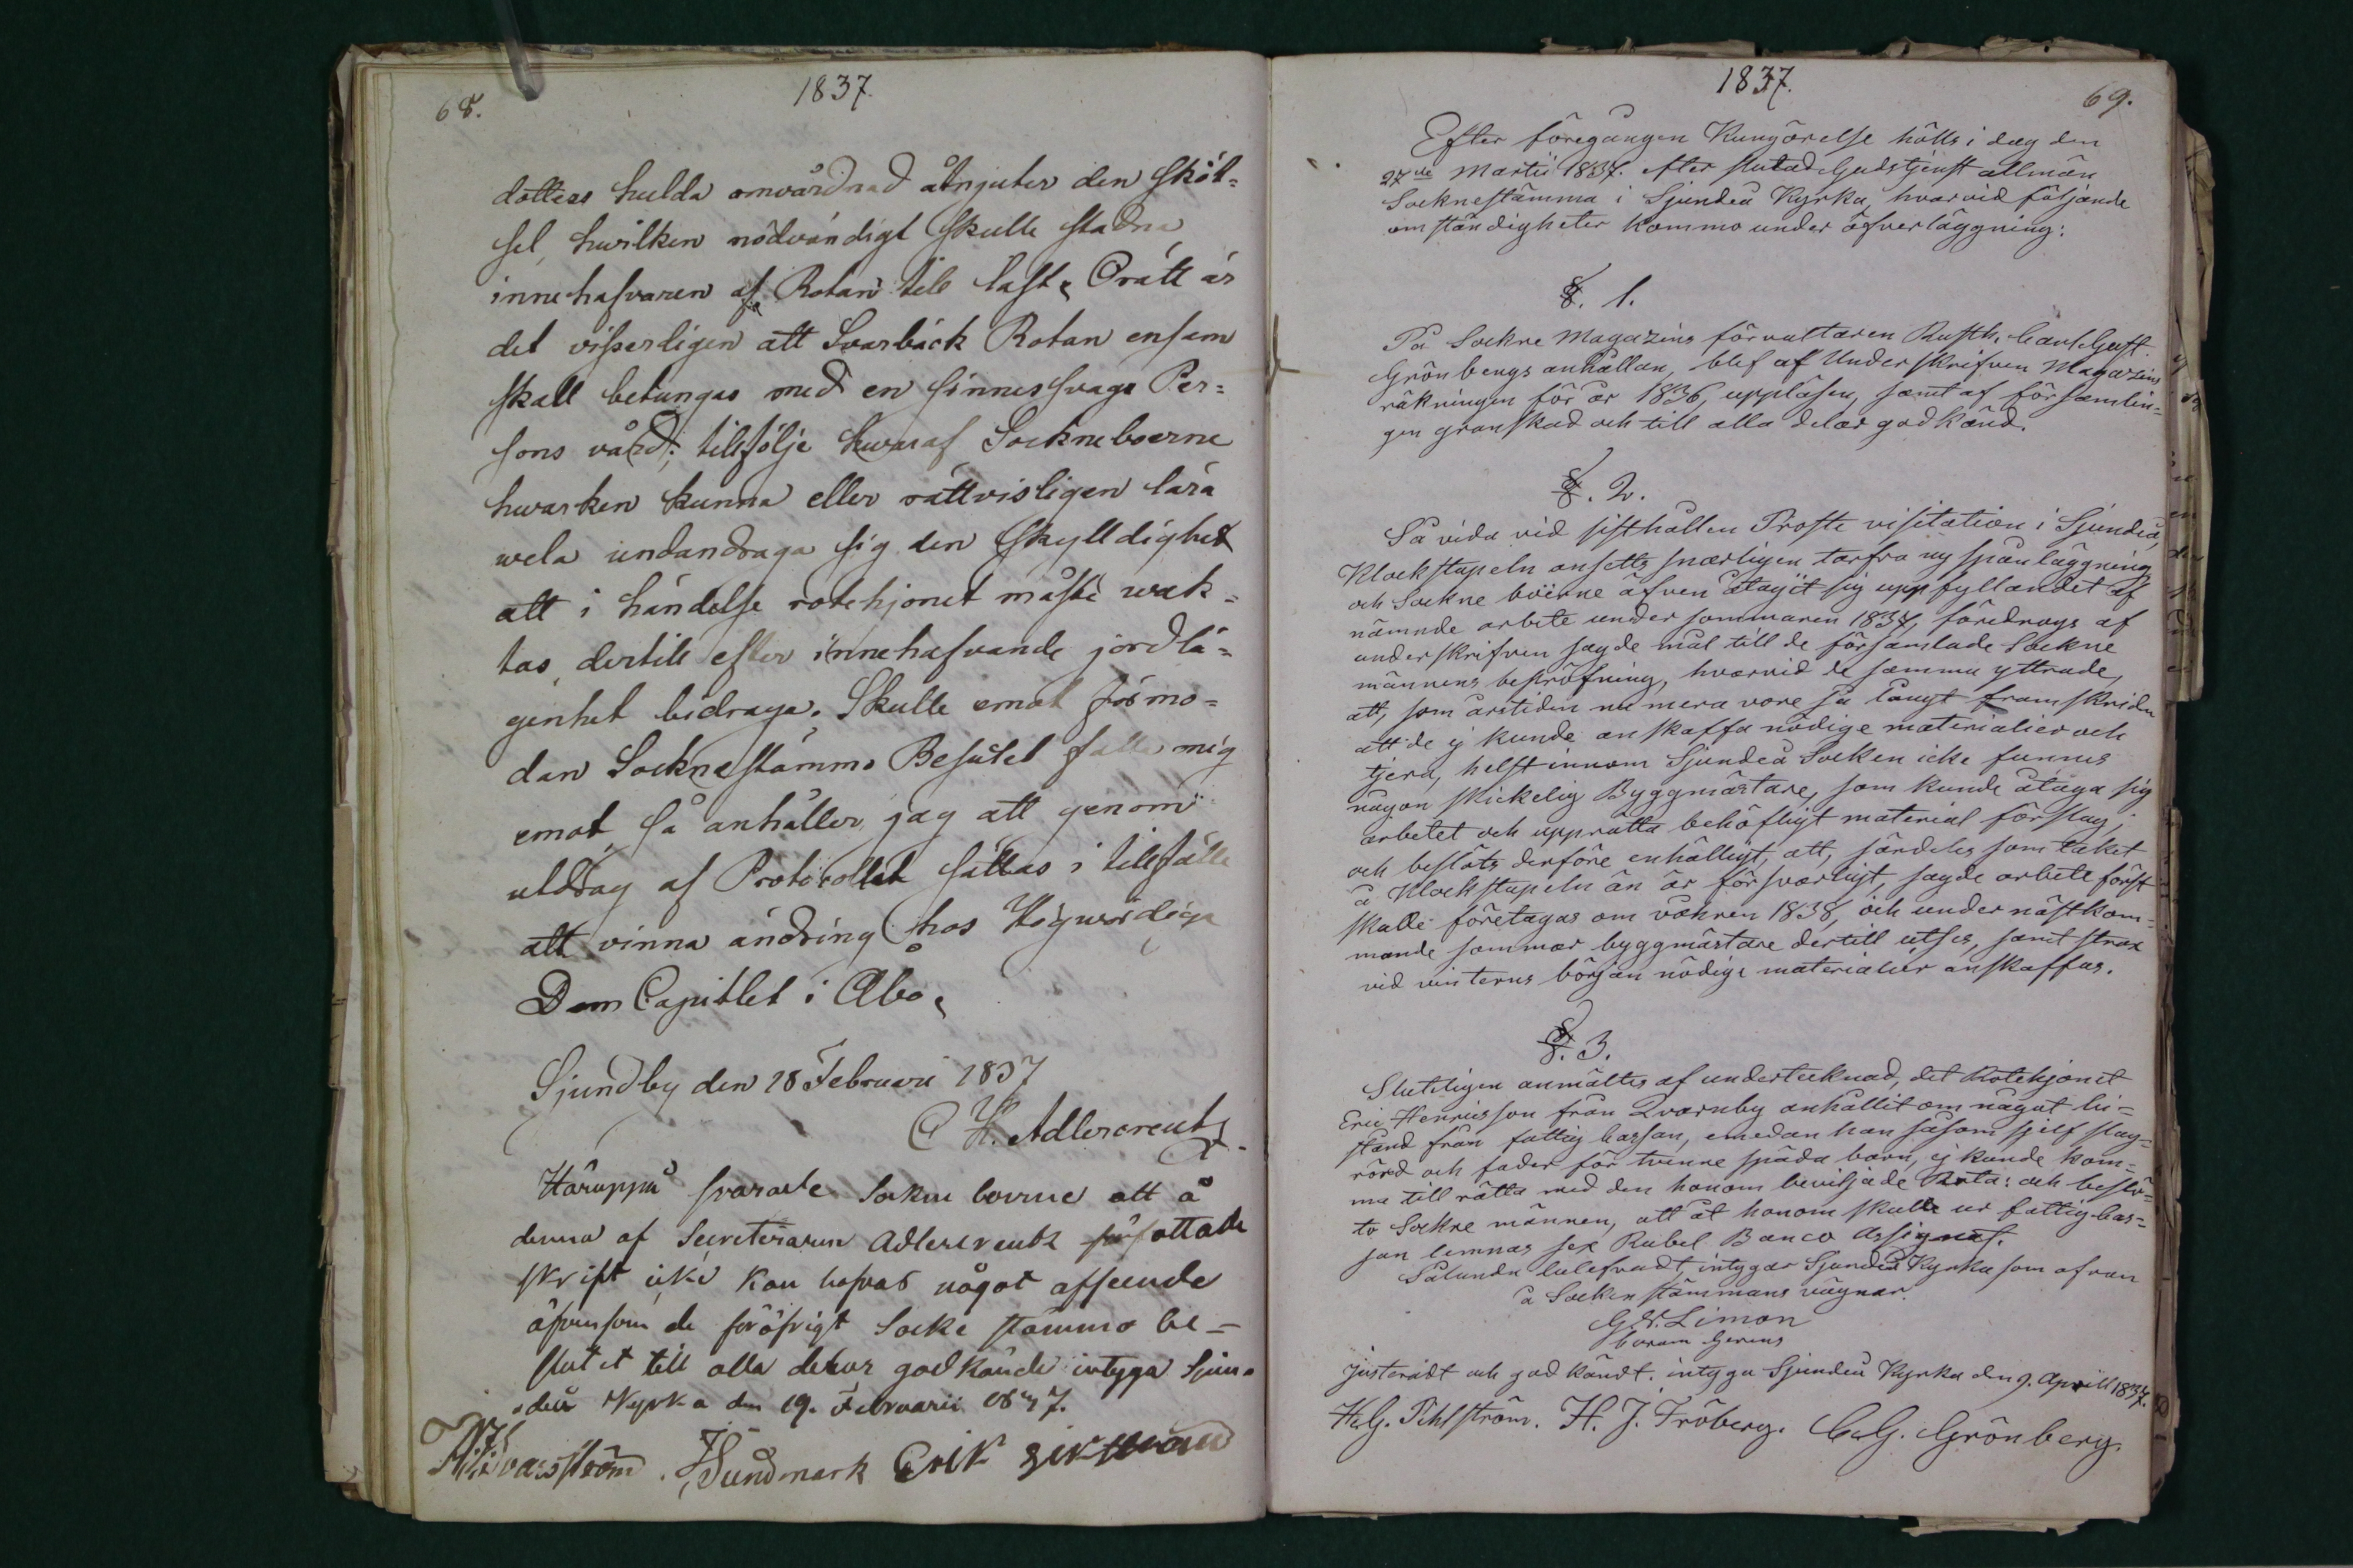 1837.
68.
dotters hulda omvårdnad åtnjuter den sköt-
sel, hwilken nödvändigt skulle stadna
innehafvaren af Rotan till last. Orätt är
det visserligen att Svarbäck Rotan ensam
skall betungas med en sinnessvags Per-
sons vård; tillfölje hwaraf Sockneboerne
hwarken kunna eller rättvisligen lära
wela undandraga sig den skylldighet
att i händelse rotehjonet måste wak-
tas, dertill efter innehafvande jordlä-
genhet bidraga. Skulle emot förmo-
dan Socknestämmo Beslutet falla mig
emot, så anhåller jag att genom
utdrag af Protocollet sättas i tillfälle
att vinna ändring hos Högwördiga
Dom Capitlet i Åbo.
Sjundby den 18 Februari 1837
C H. Adlercreutz
Häruppå svarade Sockne boerne att å
denna af Secreteraren Adlercreutz författade
skrift icke kan hafvas något afseende
äfvensom de föröfrigt Socke stämmo be-
slutet till alla delar godkände intyga Sjun-
deå Kyrka den 19. Februarii 1837.
Sundmark Erik
1837.
69.
Efter föregången Kungörelse hölls i dag den
27de Martii 1837. efter slutad Gudstjenst allmän
Socknestämma i Sjundeå Kyrka, hvarvid följande
omständigheter kommo under öfverläggning:
§. 1.
På Sockne Magazins förvaltaren Rusth. Carl Gust.
Grönbergs anhållan, blef af Underskrifven Magazins
räkningen för år 1836, uppläsen, samt af församlin-
gen granskad och till alla delar godkänd.
§. 2.
Så vida vid sisthållen Proste visitation i Sjundeå,
Klockstapeln ansetts snarligen tarfva ny spånläggning
och Sockne boerne äfven åtagit sig uppfyllandet af
nämnde arbete under sommaren 1837, föredrogs af
underskrifven sagde mål till de församlade Sockne
männens bepröfning, hvarvid de samma yttrade,
att, som årstiden nu mera vore så långt framskriden
att de ej kunde anskaffa nödige materialier och
tjera, helst innom Sjundeå Socken icke funnes
någon skickelig Byggmästare, som kunde åtaga sig
arbetet och upprätta behöfligt material förslag;
och beslöts derföre enhälligt, att, särdeles som taket
å Klockstapeln än är försvarligt, sagde arbete först
skulle företagas om våhren 1838, och under nästkom-
mande sommar byggmästare dertill utses, samt strax
vid vinterns början nödige materialier anskaffas.
§. 3.
Sluteligen anmältes af undertecknad, det Rotehjonet
Eric Henricsson från Qvarnby anhållit om något bi-
stånd från fattig cassan, emedan han såsom sjelf slag-
rörd och fader för tvenne späda barn, ej kunde kom-
ma till rätta med den honom beviljade Rota: och beslö-
to Sockne männen, att åt honom skulle ur fattig-cas-
san lemnas sex Rubel Banco Assignat.
Sålunda lulefvadt intygar Sjundeå Kyrka som ofvan
å Socken stämmans vägnar.
G. W. Limon
Coram Gerens
justeradt och godkändt. intyga Sjundeå Kyrka den 9. April 1837.
H.G. Pihlström. H. J. Fröberg. C.G. Grönberg.